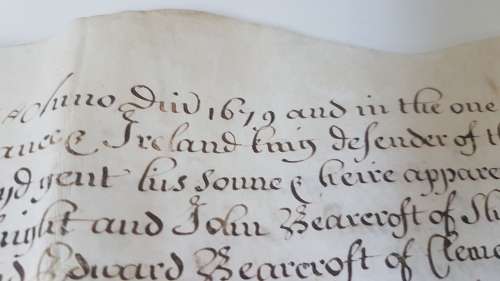 Anno Dni 1679 and in the one
ance & Ireland king defender of t
yd gent his sonne & heire appare
night and John Bearcroft of Sh
nd Edward Bearcroft of Cleme